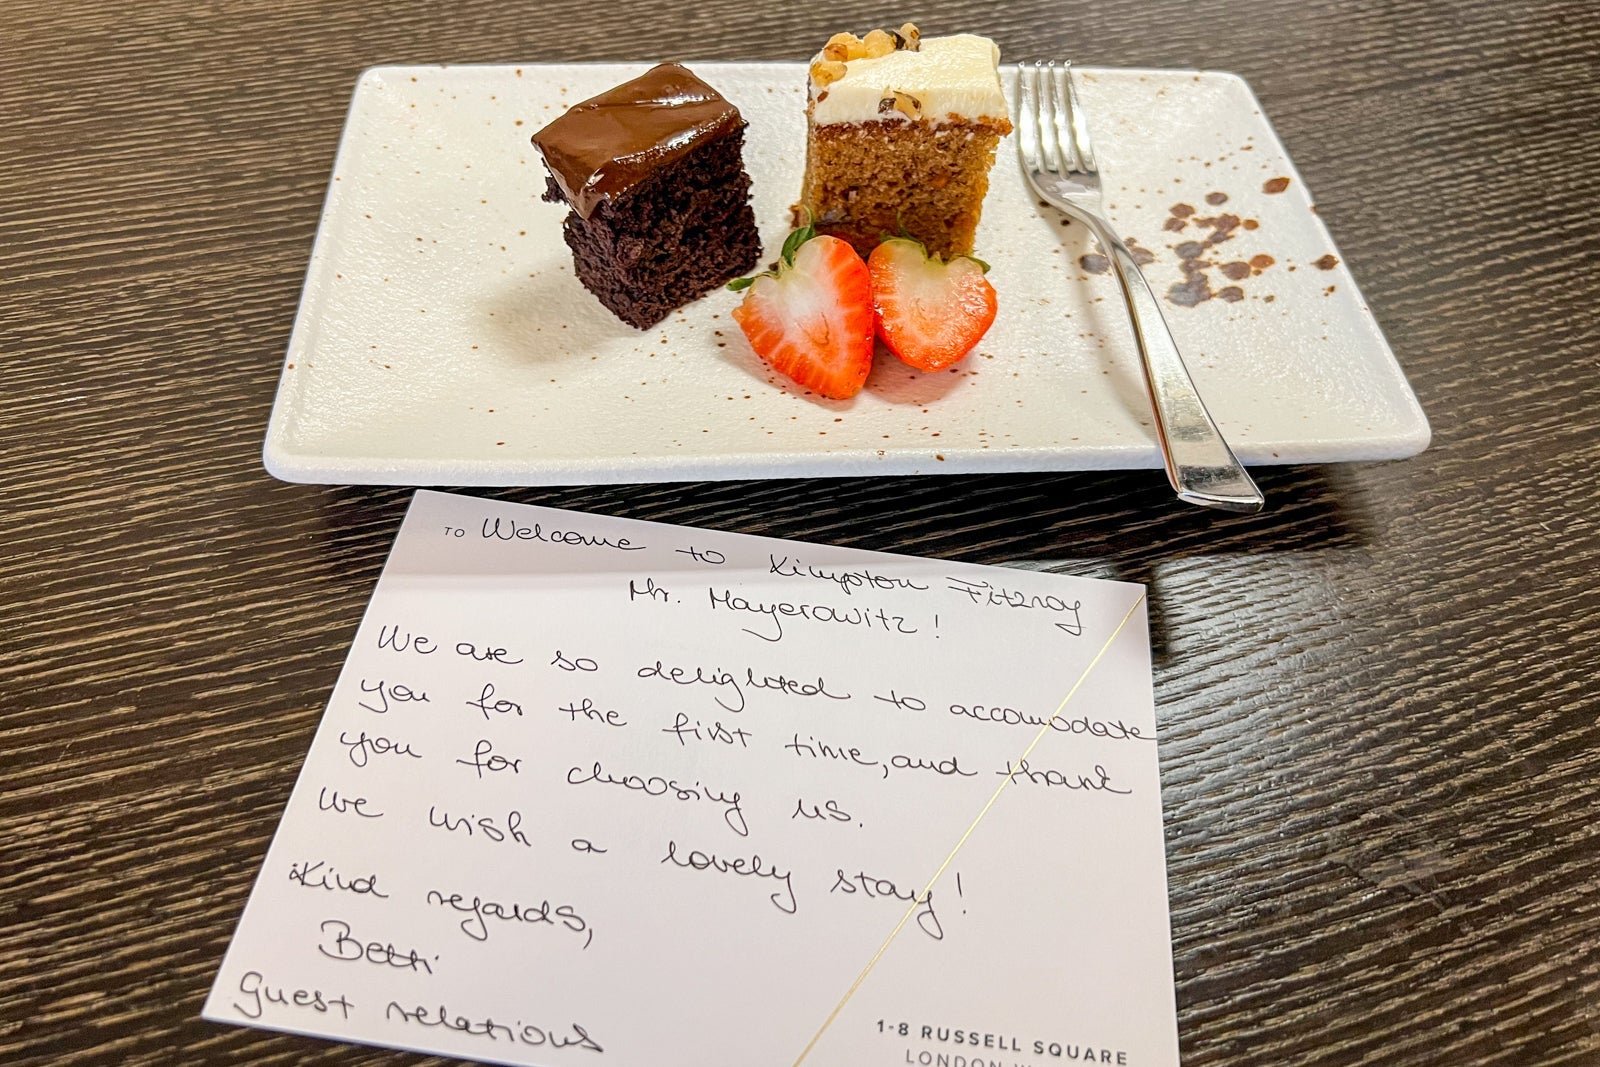 TO Welcome to Kimpton Fitzroy
Mr. Mayerowitz!
We are so delighted to accomodate
you for the first time, and thank
you for choosing us.
We wish a lovely stay!
Kind regards,
Betti
Guest relations
1-8 RUSSELL SQUARE
LONDON